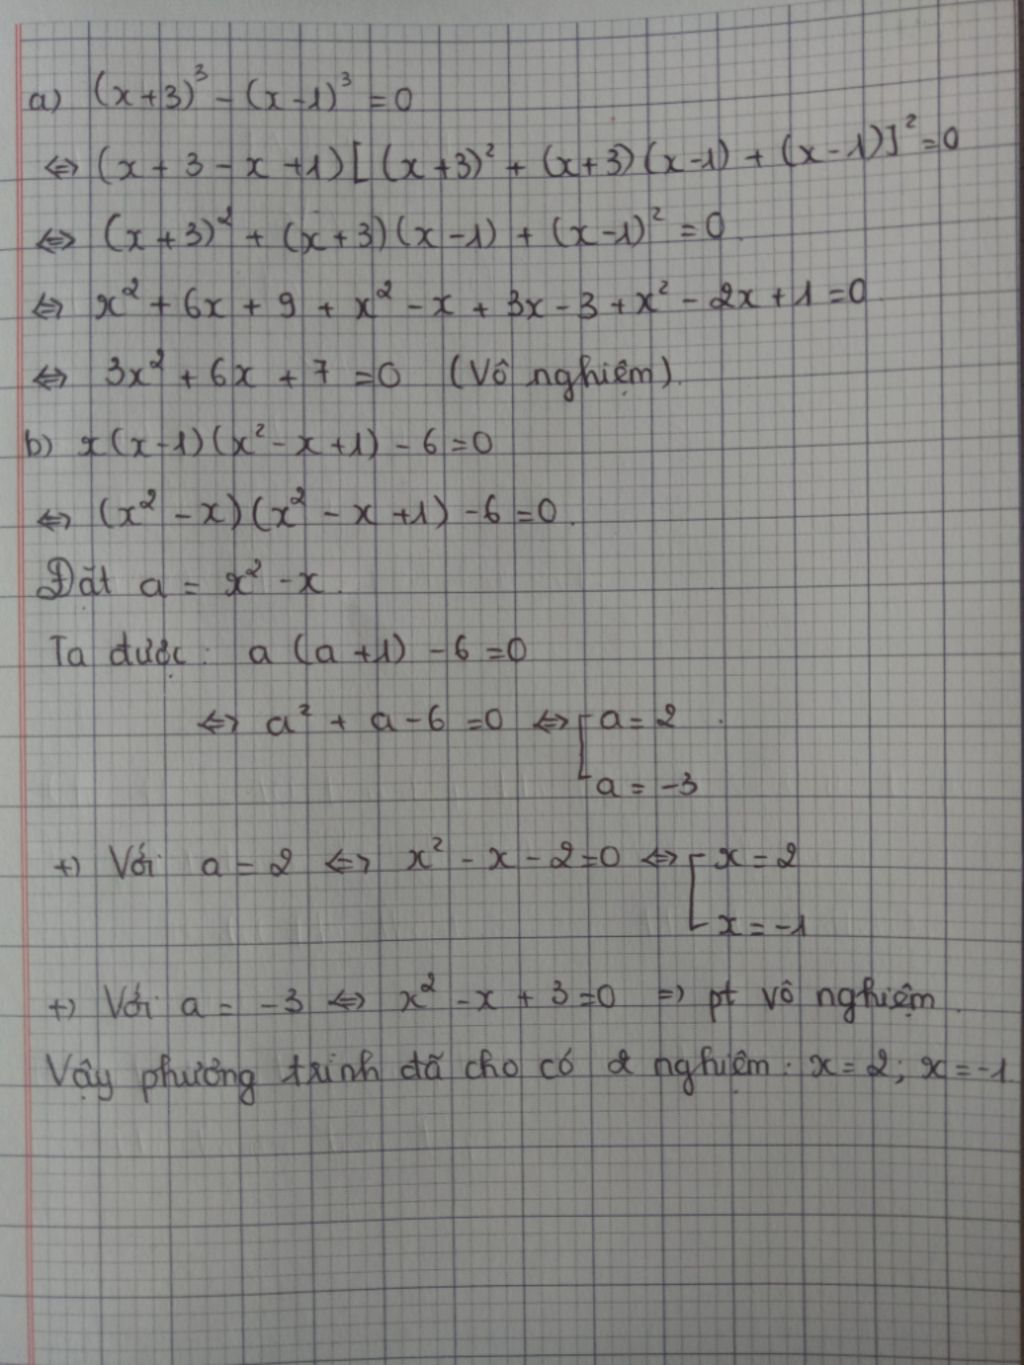 a) (x+3)³ - (x-1)³ = 0
⇔ (x + 3 - x + 1) [ (x+3)² + (x+3)(x-1) + (x-1)]² = 0
⇔ (x+3)² + (x+3)(x-1) + (x-1)² = 0
⇔ x² + 6x + 9 + x² - x + 3x - 3 + x² - 2x + 1 = 0
⇔ 3x² + 6x + 7 = 0 (Vô nghiệm).
b) x(x-1)(x² - x + 1) - 6 = 0
⇔ (x² - x)(x² - x + 1) - 6 = 0.
Đặt a = x² - x.
Ta được: a (a + 1) - 6 = 0
⇔ a² + a - 6 = 0 ⇔ [ a = 2.
a = -3
+) Với a = 2 ⇔ x² - x - 2 = 0 ⇔ [ x = 2
x = -1
+) Với a = -3 ⇔ x² - x + 3 = 0 => pt vô nghiệm.
Vậy phương trình đã cho có 2 nghiệm: x = 2; x = -1